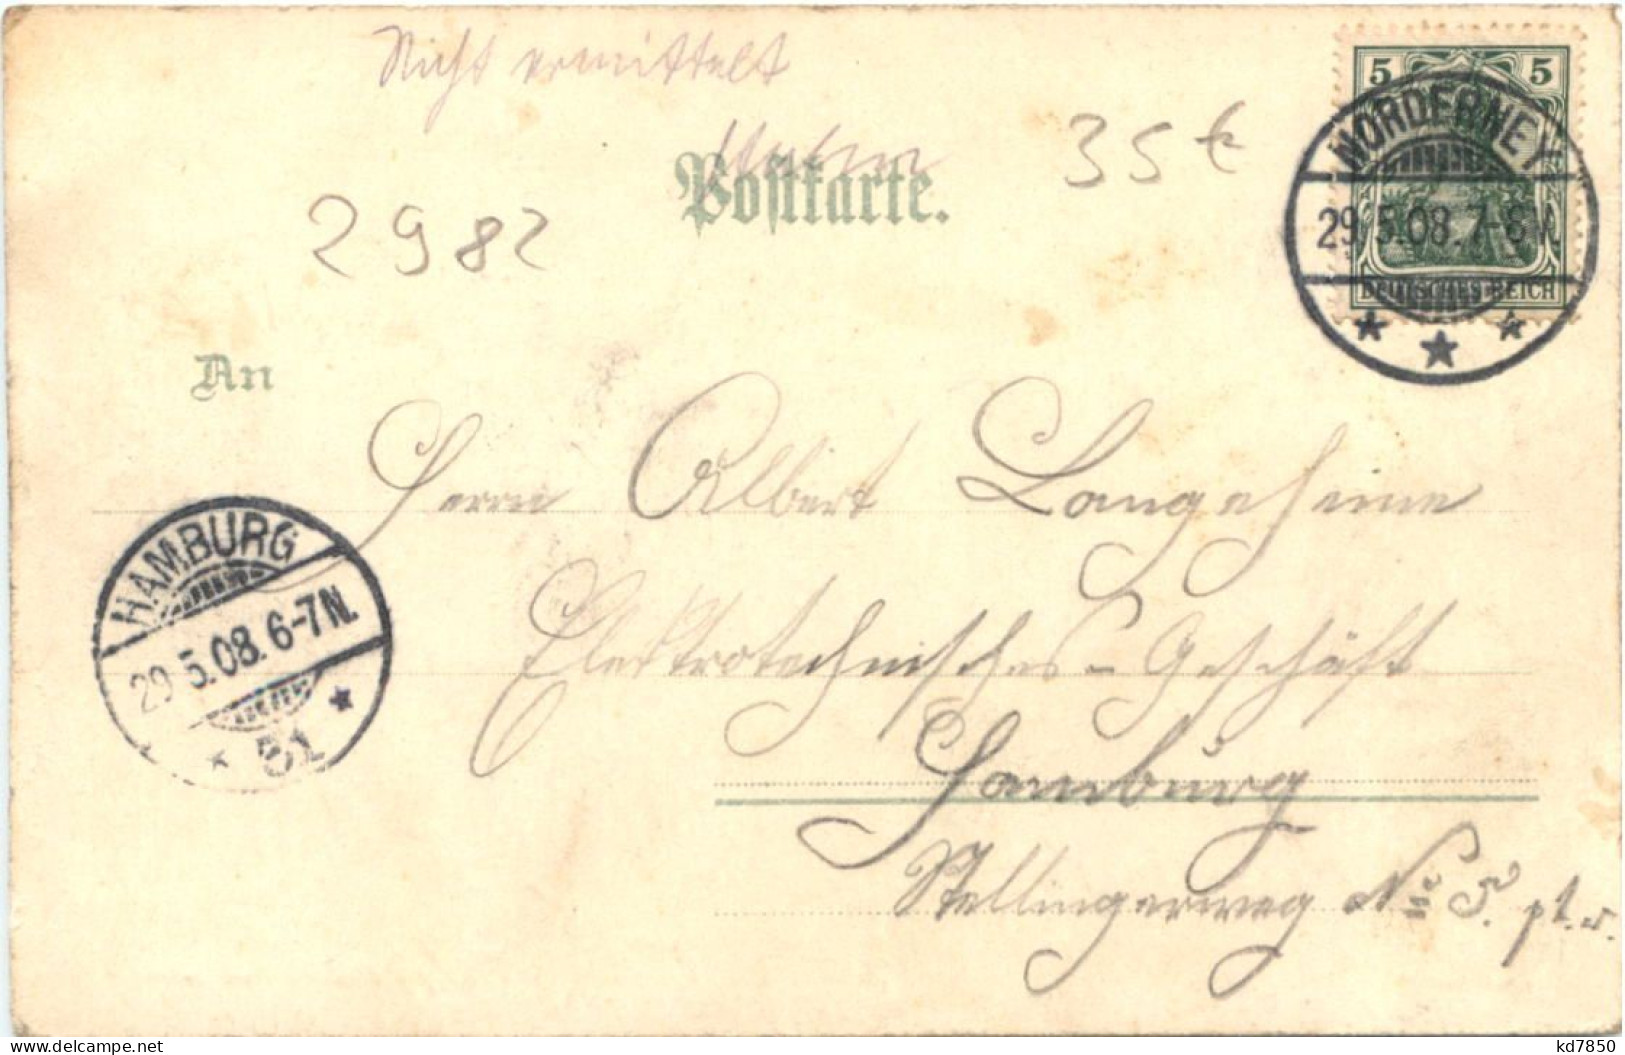 Nicht ermittelt
Postkarte.
35 €
2982
5 5
DEUTSCHES REICH
NORDERNEY
29.5.08.7-8V.
An
Herrn Albert Langeheine
Elektrotechnisches-Geschäft
Hamburg
Stellingerweg No 5. pt. r.
HAMBURG
29.5.08.6-7N.
* 51 *
delcampe.net
kd7850